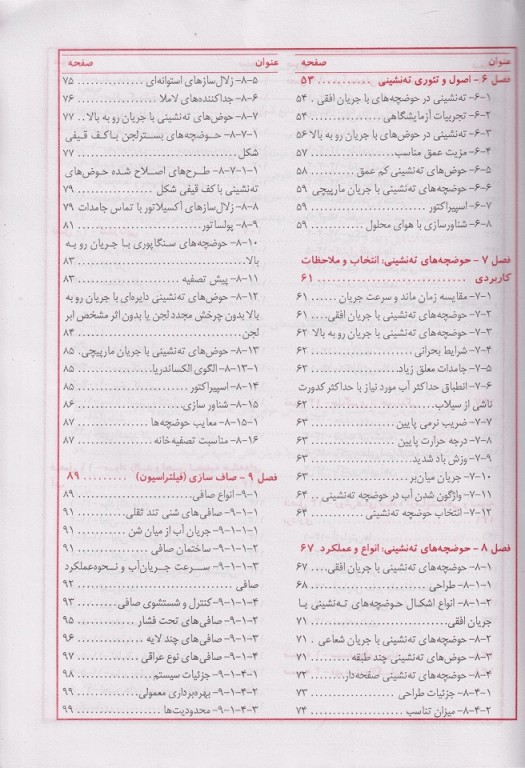 عنوان صفحه
فصل ۶ - اصول و تئوری ته‌نشینی ........... ۵۳
۶-۱- ته‌نشینی در حوضچه‌های با جریان افقی . ۵۴
۶-۲- تجربیات آزمایشگاهی ................ ۵۴
۶-۳- ته‌نشینی در حوض‌های با جریان رو به بالا ۵۶
۶-۴- مزیت عمق مناسب................... ۵۷
۶-۵- حوض‌های ته‌نشینی کم عمق ........... ۵۸
۶-۶- حوضچه‌های ته‌نشینی با جریان مارپیچی ۵۹
۶-۷- اسپیراکتور ......................... ۵۹
۶-۸- شناورسازی با هوای محلول ............ ۵۹
فصل ۷ - حوضچه‌های ته‌نشینی: انتخاب و ملاحظات
کاربردی ............................ ۶۱
۷-۱- مقایسه زمان ماند و سرعت جریان ...... ۶۱
۷-۲- حوضچه‌های ته‌نشینی با جریان افقی.... ۶۱
۷-۳- حوضچه‌های ته‌نشینی با جریان رو به بالا ۶۲
۷-۴- شرایط بحرانی ...................... ۶۲
۷-۵- جامدات معلق زیاد................... ۶۲
۷-۶- انطباق حداکثر آب مورد نیاز با حداکثر کدورت
ناشی از سیلاب ......................... ۶۲
۷-۷- ضریب نرمی پایین ................... ۶۳
۷-۸- درجه حرارت پایین .................. ۶۳
۷-۹- وزش باد شدید...................... ۶۳
۷-۱۰- جریان میان‌بر ..................... ۶۳
۷-۱۱- واژگون شدن آب در حوضچه ته‌نشینی .. ۶۴
۷-۱۲- انتخاب حوضچه ته‌نشینی............. ۶۴
فصل ۸ - حوضچه‌های ته‌نشینی: انواع و عملکرد ۶۷
۸-۱- حوضچه‌های ته‌نشینی با جریان افقی.... ۶۷
۸-۱-۱- طراحی ......................... ۶۸
۸-۱-۲- انواع اشکال حوضچه‌های ته‌نشینی با
جریان افقی............................. ۷۱
۸-۲- حوضچه‌های ته‌نشینی با جریان شعاعی . ۷۱
۸-۳- حوض‌های ته‌نشینی چند طبقه ......... ۷۱
۸-۴- حوضچه‌های ته‌نشینی صفحه‌دار........ ۷۲
۸-۴-۱- جزئیات طراحی ................... ۷۳
۸-۴-۲- میزان تناسب .................... ۷۴
عنوان صفحه
۸-۵- زلال‌سازهای استوانه‌ای ............... ۷۵
۸-۶- جداکننده‌های لاملا .................. ۷۶
۸-۷- حوض‌های ته‌نشینی با جریان رو به بالا.. ۷۷
۸-۷-۱- حوضچه‌های بسترلجن با کف قیفی
شکل ................................. ۷۷
۸-۷-۱-۱- طرح‌های اصلاح شده حوض‌های
ته‌نشینی با کف قیفی شکل ............... ۷۹
۸-۸- زلال‌سازهای آکسیلاتور با تماس جامدات ۷۹
۸-۹- پولساتور ........................... ۸۱
۸-۱۰- حوضچه‌های سنگاپوری با جریان رو به
بالا................................... ۸۳
۸-۱۱- پیش تصفیه ....................... ۸۳
۸-۱۲- حوض‌های ته‌نشینی دایره‌ای با جریان رو به
بالا بدون چرخش مجدد لجن یا بدون اثر مشخص ابر
لجن.................................. ۸۴
۸-۱۳- حوض‌های ته‌نشینی با جریان مارپیچی. ۸۵
۸-۱۳-۱- الگوی الکساندریا................ ۸۵
۸-۱۴- اسپیراکتور ........................ ۸۵
۸-۱۵- شناور سازی....................... ۸۶
۸-۱۵-۱- معایب حوضچه‌ها ................ ۸۷
۸-۱۶- مناسبت تصفیه‌خانه ................ ۸۷
فصل ۹ - صاف سازی (فیلتراسیون) ......... ۸۹
۹-۱- انواع صافی......................... ۸۹
۹-۱-۱- صافی‌های شنی تند ثقلی........... ۹۱
۹-۱-۱-۱- جریان آب از میان شن ........... ۹۱
۹-۱-۱-۲- ساختمان صافی ................ ۹۱
۹-۱-۱-۳- سرعت جریان‌آب و نحوه‌عملکرد
صافی ................................ ۹۲
۹-۱-۱-۴- کنترل و شستشوی صافی......... ۹۳
۹-۱-۲- صافی‌های تحت فشار ............. ۹۵
۹-۱-۳- صافی‌های چند لایه ............... ۹۶
۹-۱-۴- صافی‌های نوع عراقی .............. ۹۷
۹-۱-۴-۱- جزئیات سیستم ................ ۹۸
۹-۱-۴-۲- بهره‌برداری معمولی............. ۹۹
۹-۱-۴-۳- محدودیت‌ها................... ۹۹